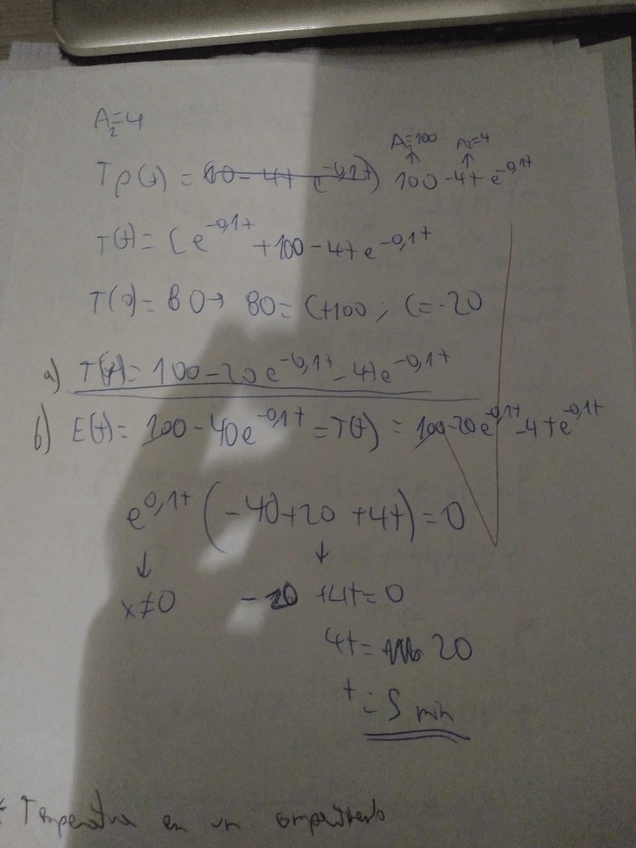 A₂=4
A₁=100 A₂=4
Tp(t) = 100-4t e^-0,1t
T(t)= Ce^-0,1t +100-4te^-0,1t
T(0)=80→ 80= C+100; C=-20
a) T(t)= 100-20e^-0,1t-4te^-0,1t
b) E(t)= 100-40e^-0,1t =T(t) = 100-20e^-0,1t-4te^-0,1t
e^0,1t (-40+20 +4t)=0
↓ ↓
x≠0 -20 +4t=0
4t= 20
t=5 min
* Temperatura en un